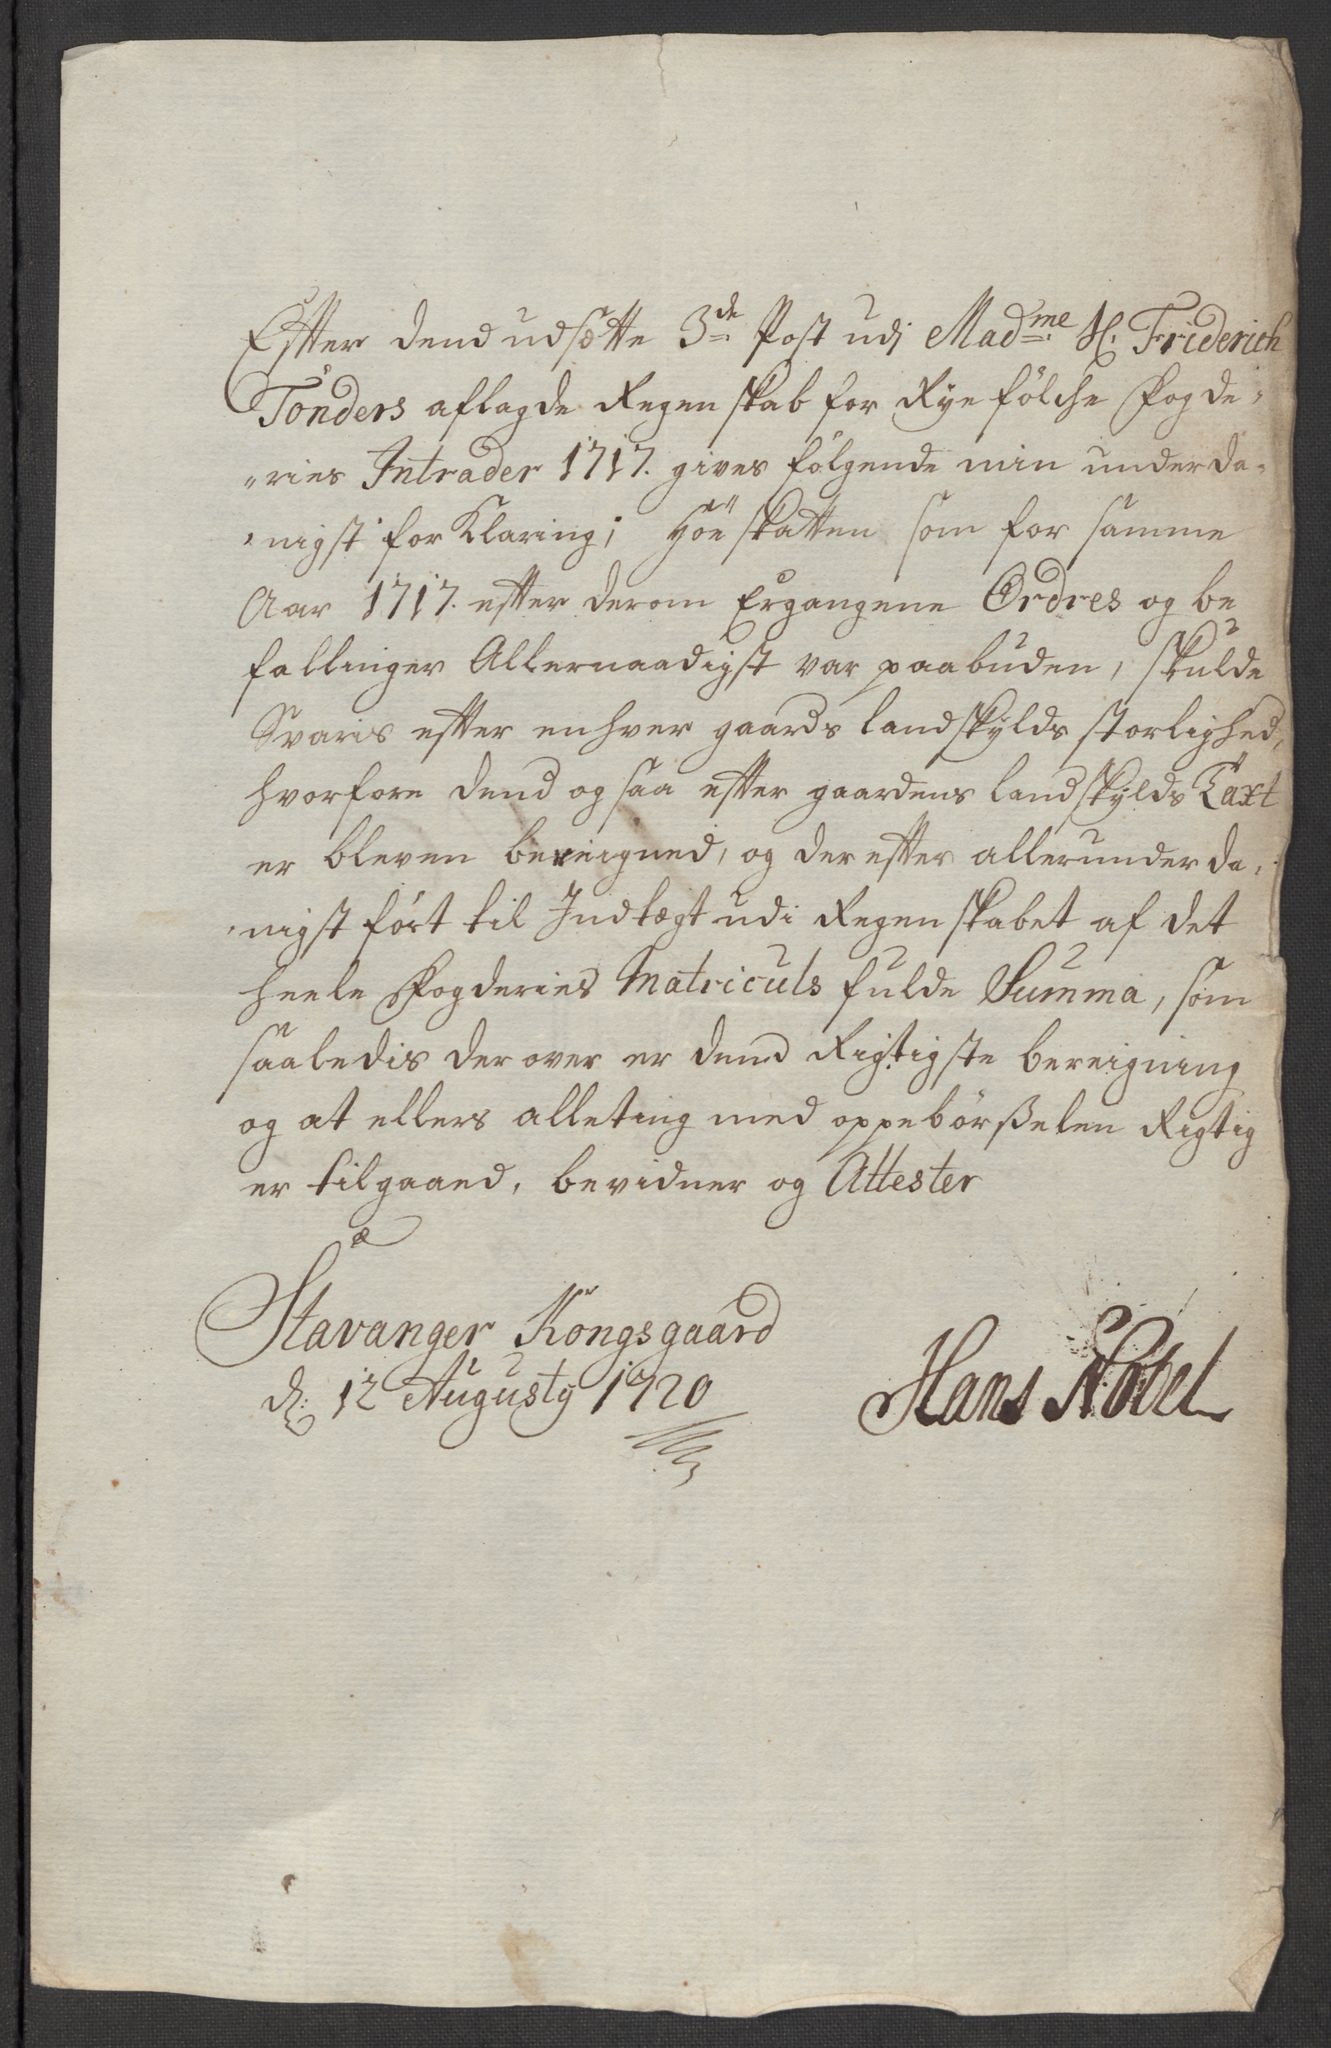 Effter dend udsette 3de Post udj Madme Sl. Friderich
Tönders aflagde Regenskab for Ryefölche Fogde-
"ries Intrader 1717. gives fölgende min underda-
"nigst forklaring; Höe skatten som for samme
Aar 1717. effter derom Ergangene Ordres og be
fallinger Allernaadigst var paabuden, skulde
Svaris effter enhver gaards landskylds storlighed,
hvorfore dend og saa effter gaardens landskylds Taxt
er bleven bereigned, og der effter allerunderda-
"nigst fört til Indtægt udi Regenskabet af det
heele Fogderies Matriculs fulde Summa, som
saaledis der over er dend Rigtigste bereigning
og at ellers alleting med oppebörßelen Rigtig
er tilgaaed, bevidner og Attester
Stavanger Kongsgaard
d: 12 Augusty 1720
Hans Nobel